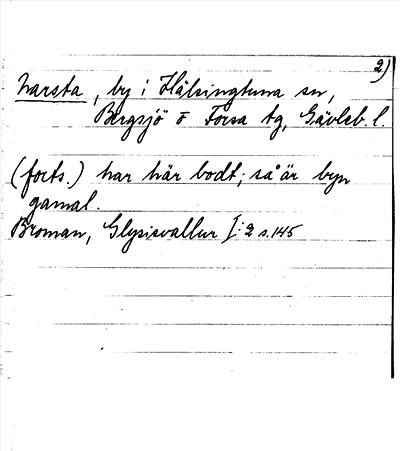 2)
Narsta, by i Hälsingtuna sn,
Bergsjö o Forsa tg, Gävleb. l.
(forts.) har här bodt; så är byn
gamal.
Broman, Glysisvallur I:2 s.145